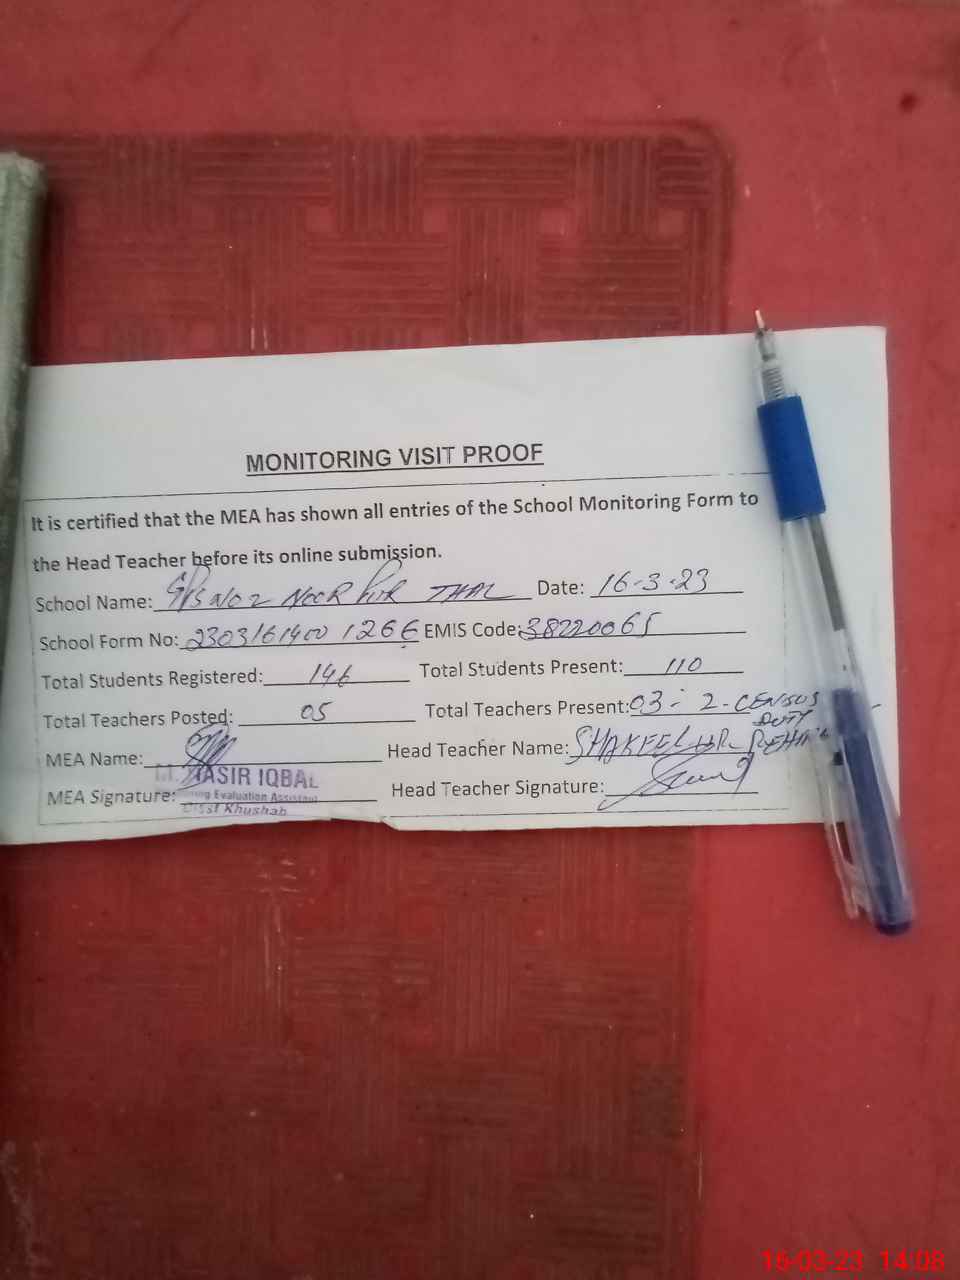 MONITORING VISIT PROOF
It is certified that the MEA has shown all entries of the School Monitoring Form to
the Head Teacher before its online submission.
School Name: GPS NO 2 NOOR PUR THAL Date: 16-3-23
School Form No: 2303161400 1266 EMIS Code: 38220065
Total Students Registered: 146 Total Students Present: 110
Total Teachers Posted: 05 Total Teachers Present: 03 - 2 - CENSUS DUTY
MEA Name: Head Teacher Name: SHAKEEL UR REHMAN
M. NASIR IQBAL
MEA Signature: Head Teacher Signature:
Evaluation Assistant
Disst Khushab
16-03-23 14:08